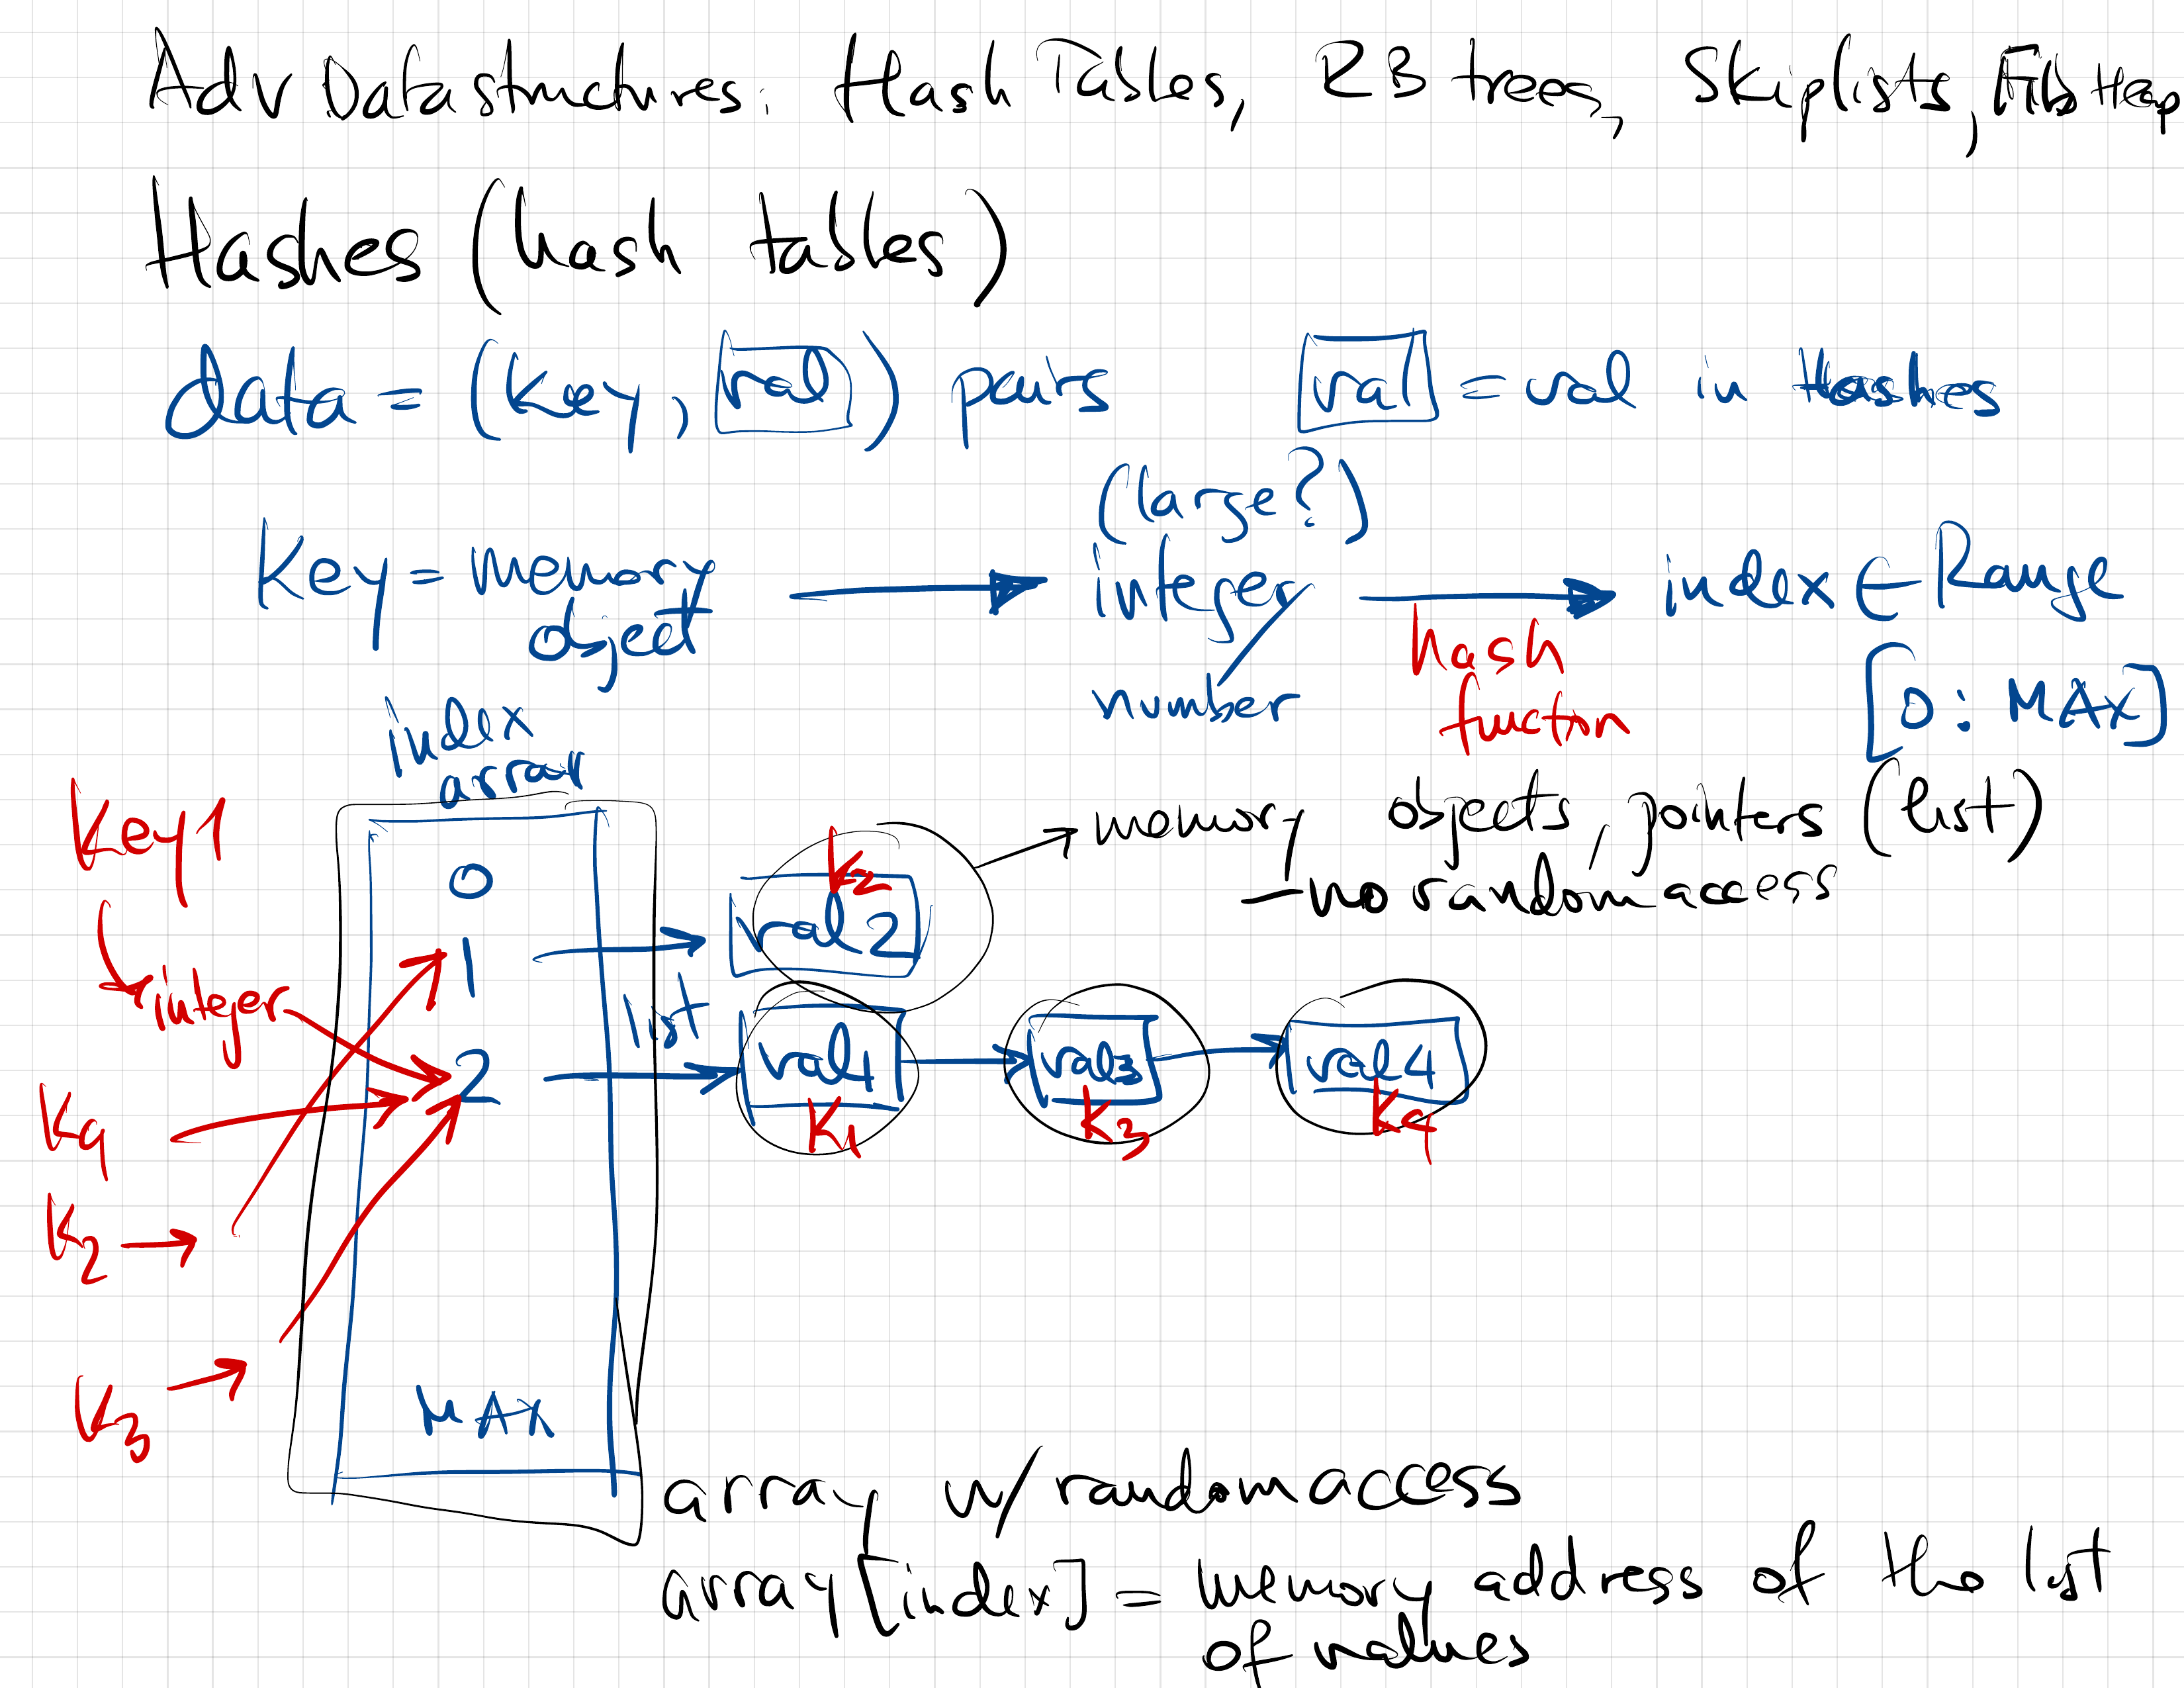 Adv Data structures: Hash Tables, RB trees, Skiplists, Fib Heap
Hashes (hash tables)
data = (key, val) pairs val = val in Hashes
(large?)
Key = memory object → integer number → index ∈ Range
hash function
[0 : MAX]
index array
Key1
integer
K4
K2 →
K3 →
0
1
2
MAX
list
K2
val 2
val1
K1
val3
K3
val4
K4
memory objects, pointers (list)
— no random access
array w/ random access
array [index] = memory address of the list
of values